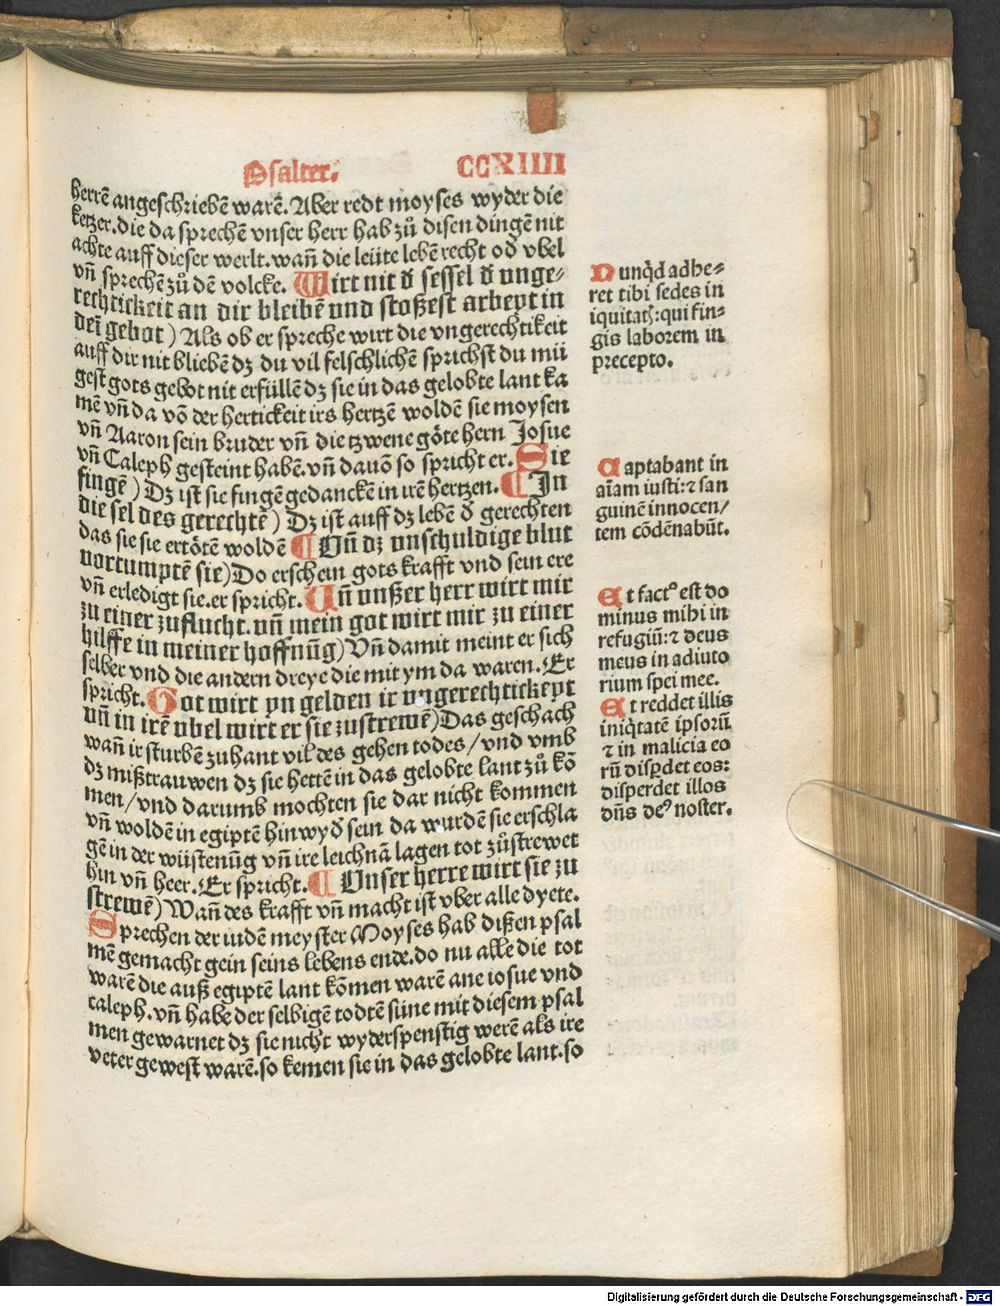 Psalter.
CCXIIII
herrē angeschriebē warē. Aber redt moyses wyder die
ketzer. die da sprechē vnser herr hab zů disen dingē nit
achte auff dieser werlt. wañ die leüte lebē recht od̕ vbel
vñ sprechē zů dē volcke. Wirt nit d̕ sessel d̕ unge⸗
rechtickeit an dir bleibē vnd stoßest arbeyt in
dei͂ gebot) Als ob er spreche wirt die vngerechtikeit
auff dir nit bliebē dz du vil felschlichē sprichst du mü
gest gots gebot nit erfüllē dz sie in das gelobte lant ka
mē vñ da vō der hertickeit irs hertzē woldē sie moysen
vñ Aaron sein bruder vñ die tzwene göte hern Josue
vñ Caleph gesteint habē. vñ dauō so spricht er. Sie
fingē) Dz ist sie fingē gedanckē in irē hertzen. ¶ In
die sel des gerechtē) Dz ist auff dz lebē d̕ gerechten
das sie sie ertötē woldē ¶ Vñ dz vnschuldige blut
vortumptē sie) Do erschein gots krafft vnd sein ere
vñ erledigt sie. er spricht. Uñ vnßer herr wirt mir
zu einer zuflucht. vñ mein got wirt mir zu einer
hilffe in meiner hoffnūg) Vñ damit meint er sich
selber vnd die andern dreye die mit ym da waren. Er
spricht. Got wirt yn gelden ir vngerechtickeyt
vñ in irē vbel wirt er sie zustrewē) Das geschach
wañ ir sturbē zuhant vil des gehen todes/ vnd vmb
dz mißtrauwen dz sie hettē in das gelobte lant zů kō
men/ vnd darumb mochten sie dar nicht kommen
vñ woldē in egiptē hinwyd̕ sein da wurdē sie erschla
gē in der wüstenūg vñ ire leichnā lagen tot zůstrewet
hin vñ heer. Er spricht. ¶ Vnser herre wirt sie zu
strewē) Wañ des krafft vñ macht ist vber alle dyete.
Sprechen der iudē meyster Moyses hab dißen psal
mē gemacht gein seins lebens ende. do nu alle die tot
warē die auß egiptē lant kōmen warē ane iosue vnd
caleph. vñ habe der selbigē todtē süne mit diesem psal
men gewarnet dz sie nicht wyderspenstig werē als ire
veter gewest warē. so kemen sie in das gelobte lant. so
Nunq̄d adhe⸗
ret tibi sedes in
iquitatꝭ: qui fin⸗
gis laborem in
precepto.
Captabant in
aīam iusti: ⁊ san
guinē innocen/
tem cōdēnabūt.
Et factꝰ est do
minus mihi in
refugiū: ⁊ deus
meus in adiuto
rium spei mee.
Et reddet illis
iniq̄tatē ipsorū
⁊ in malicia eo
rū disꝑdet eos:
disperdet illos
dñs deꝰ noster.
Digitalisierung gefördert durch die Deutsche Forschungsgemeinschaft - DFG